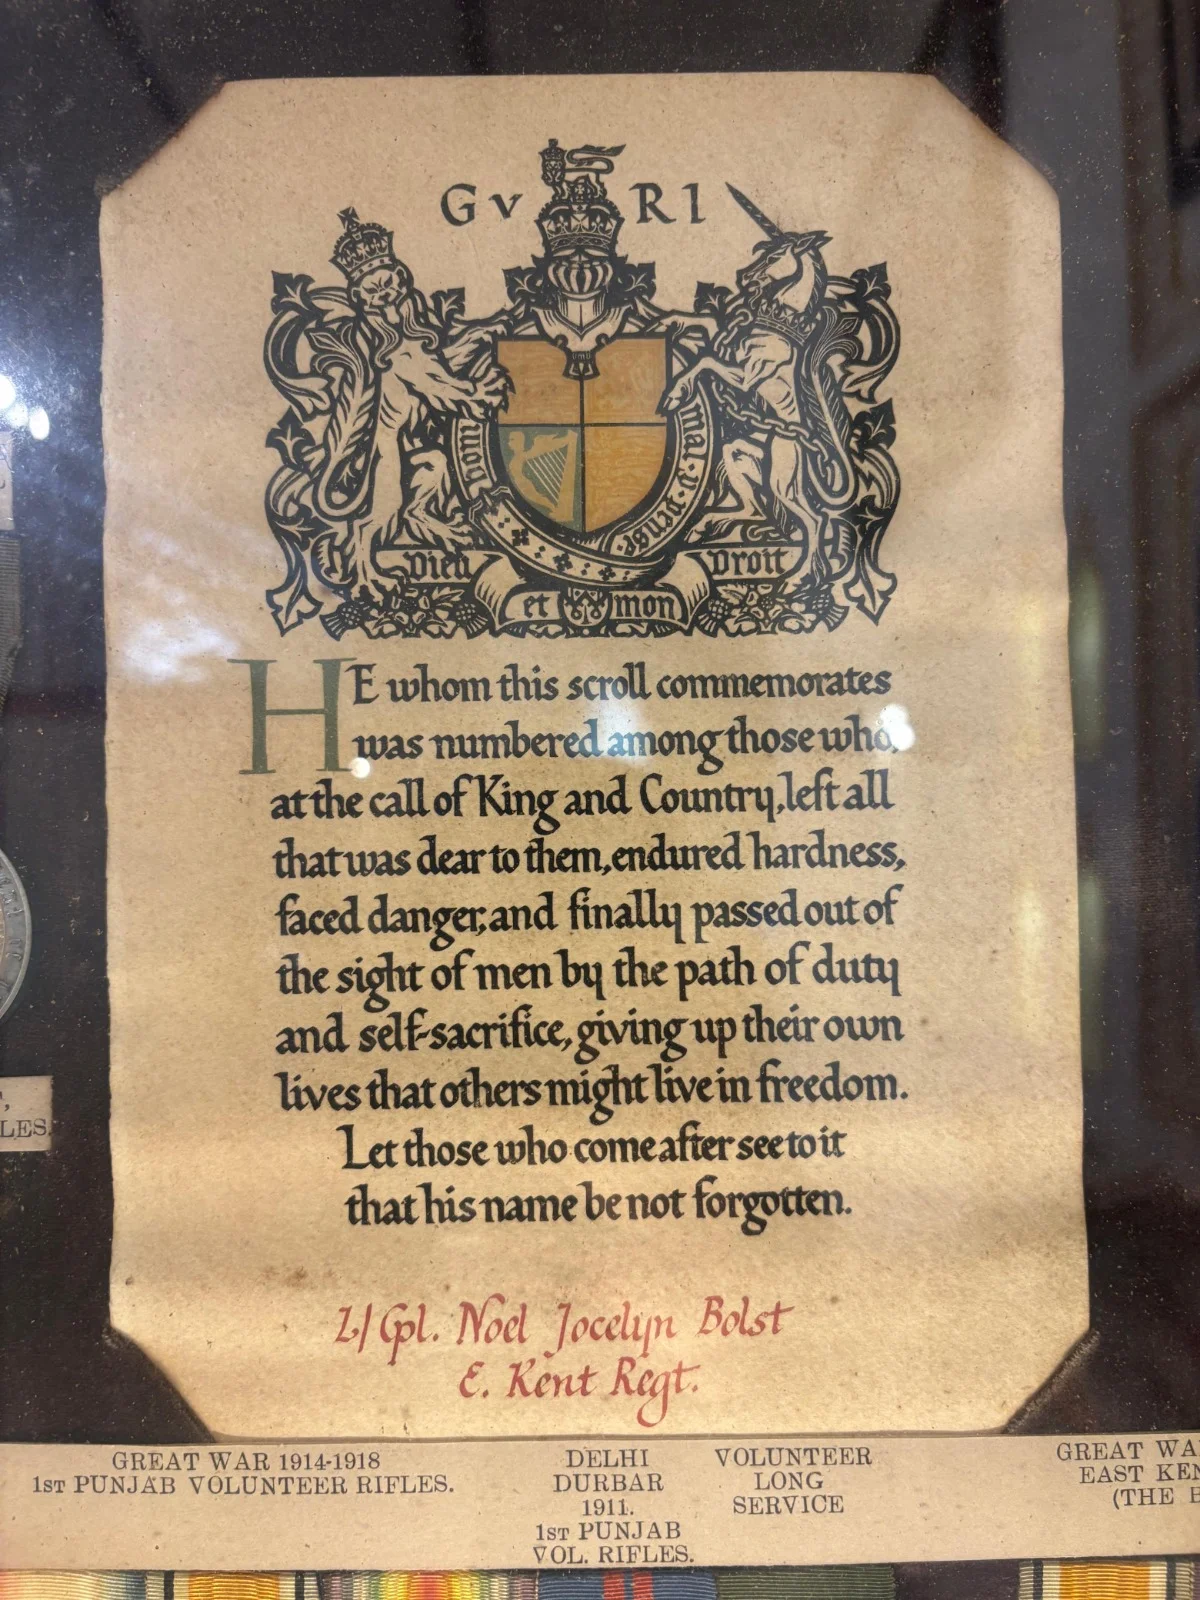 G V R I
Honi
mal·y·pense
Dieu Droit
et mon
HE whom this scroll commemorates
was numbered among those who,
at the call of King and Country, left all
that was dear to them, endured hardness,
faced danger, and finally passed out of
the sight of men by the path of duty
and self-sacrifice, giving up their own
lives that others might live in freedom.
Let those who come after see to it
that his name be not forgotten.
L/Cpl. Noel Jocelyn Bolst
E. Kent Regt.
LES.
GREAT WAR 1914-1918
1ST PUNJAB VOLUNTEER RIFLES.
DELHI
DURBAR
1911.
1ST PUNJAB
VOL. RIFLES.
VOLUNTEER
LONG
SERVICE
GREAT WA
EAST KEN
(THE B